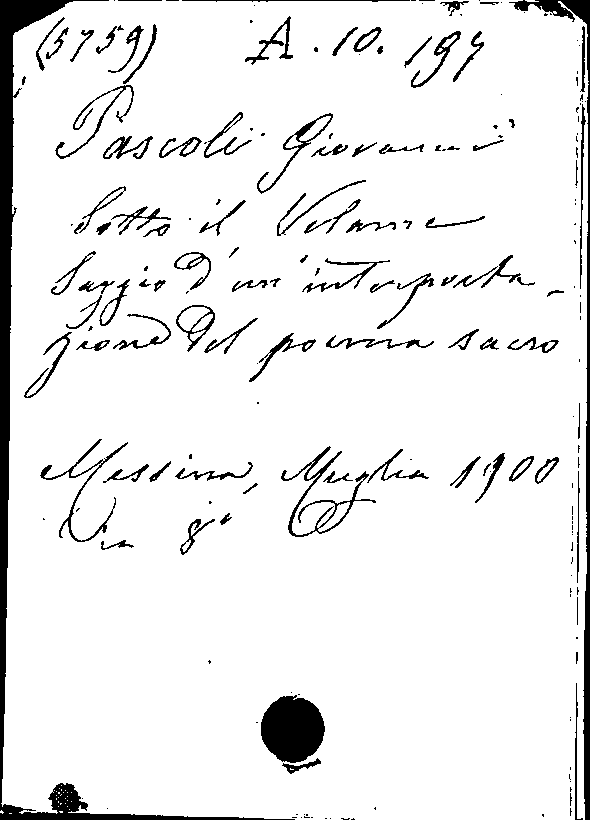 (5759) A. 10. 197
Pascoli Giovanni
Sotto il Velame
Saggio d'un'interpreta-
zione del poema sacro
Messina, Muglia 1900
in 8°